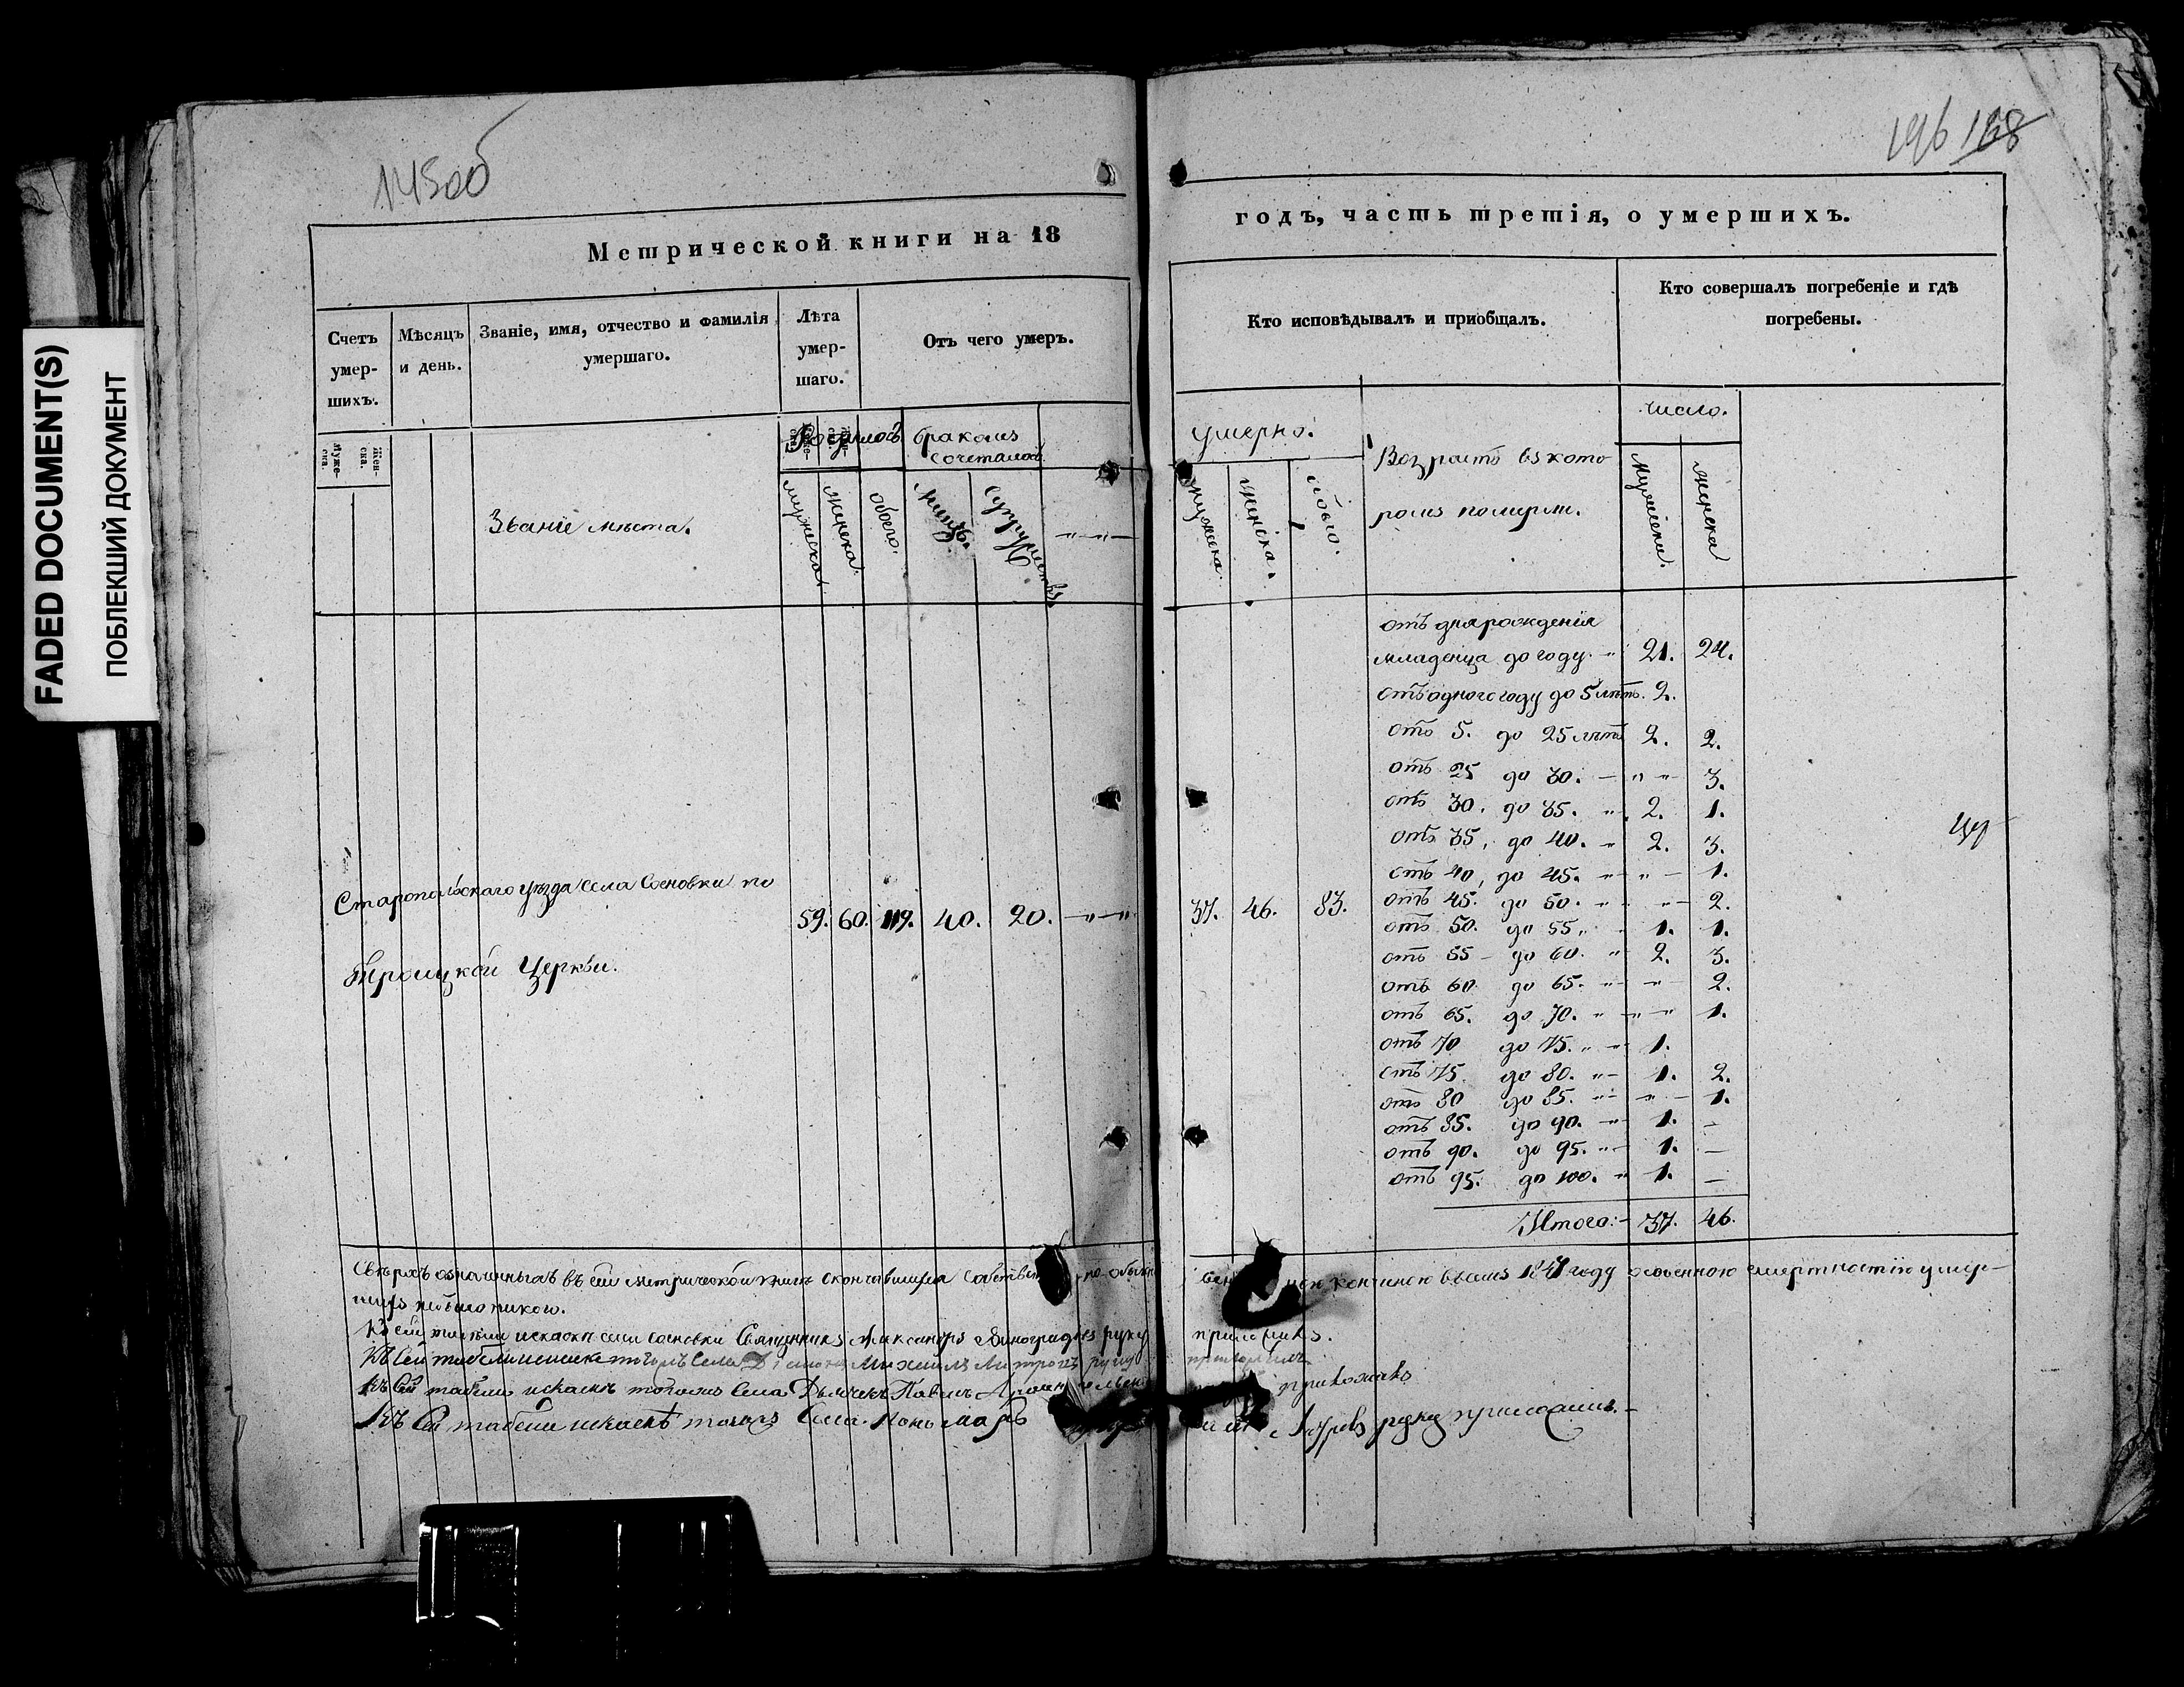 FADED DOCUMENT(S)
ПОБЛЕКШИЙ ДОКУМЕНТ
145об
196 168
Метрической книги на 18
годъ, часть третія, о умершихъ.
Счетъ умер-шихъ.
Мѣсяцъ и день.
Званіе, имя, отчество и фамилія умершаго.
Лѣта умер-шаго.
Отъ чего умеръ.
Кто исповѣдывалъ и приобщалъ.
Кто совершалъ погребеніе и гдѣ погребены.
Муже-ска.
Жен-ска.
Званіе мѣста.
Родилось
мужеска.
женска.
обоего.
бракомъ сочеталось
лицъ.
супружествъ.
умерло.
мужеска.
женска.
обоего.
Возрастъ въ кото
ромъ померли.
число.
мужеска.
женска
Старопольскаго уѣзда села Сосновки по
Троицкой Церкви.
59. 60. 119. 40. 20.
37. 46. 83.
отъ дня рожденія
младенца до году 21. 24.
отъ одного году до 5 лѣтъ. 2.
отъ 5. до 25 лѣтъ 2. 2.
отъ 25 до 30. 3.
отъ 30. до 35. 2. 1.
отъ 35, до 40. 2. 3.
отъ 40, до 45. 1.
отъ 45. до 50. 2.
отъ 50. до 55. 1. 1.
отъ 55 до 60. 2. 3.
отъ 60 до 65. 2.
отъ 65. до 70. 1.
отъ 70 до 75. 1.
отъ 75 до 80. 1. 2.
отъ 80 до 85. 1.
отъ 85. до 90. 1. —
отъ 90. до 95. 1. —
отъ 95. до 100. 1. —
Итого: 37. 46.
Цер
Сверхъ означенныхъ въ сей метрической книгѣ скончавшихся кончиною въ семъ 1841 году особенною смертностію умер-
шихъ не было никого.
Къ сей табели села Сосновки Священникъ Александръ Виноградовъ руку приложилъ.
Къ сей табели тогожъ села Діаконъ Михаилъ руку приложилъ
Къ сей табели тогожъ села Дьячекъ Павелъ приложилъ
Къ сей табели тогожъ села Пономарь руку приложилъ.